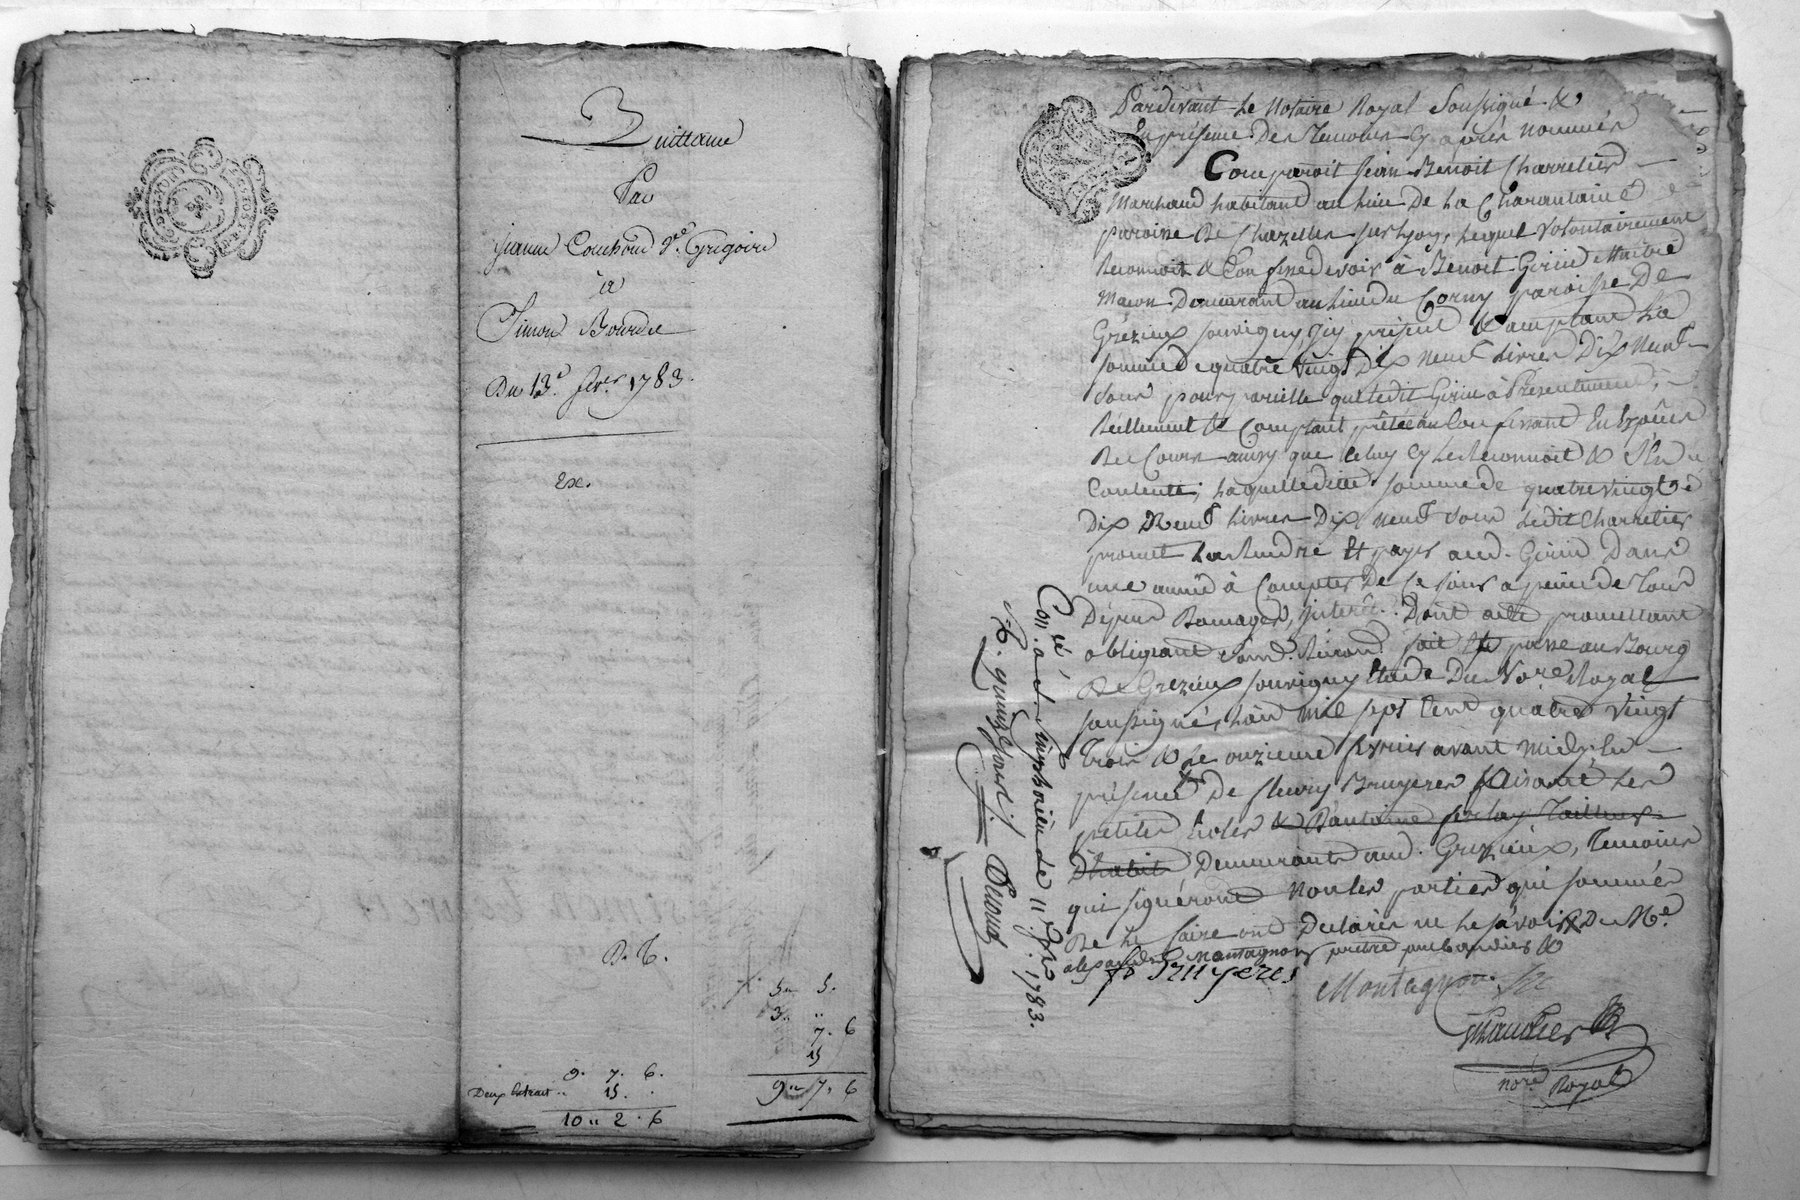 Quittance
Par
Jeanne Couchoud Ve. Grégoire
à
Simon Bourdel
Du 13e. fevr. 1783.
Exe.
D. T.
5 .. 5.
3. ..
7. 6
15
9 .. 7. 6
9. 7. 6.
Deux Extrait .. 15. .
10 .. 2. 6
Pardevant Le Notaire Royal Soussigné &
En présence Des Temoins Cy après nommés
Comparoit Jean Benoit Charretier
Marchand habitant au Lieu De La Charantainé
paroisse De Chazelles sur Lyon, Lequel volontairement
Reconnoit & Confesse devoir à Benoit Girin Maitre
Maçon Demeurant au Lieu du Corny paroisse De
Grézieux souvigny, Icy présent & acceptant La
somme de quatre vingt Dix neuf Livres Dix Neuf
sous pour pareille que Ledit Girin a Présentement,
Réellement & Comptant prêtée au Confessant En Espèces
De Cours ainsy que Celuy Cy Le Reconnoit & s'En
Contente; Laquelle ditte somme de quatre vingt
Dix Neuf Livres Dix neuf sous Ledit Charretier
promet La Rendre Et payer aud. Girin Dans
une année à Compter De Ce jour a peine de tous
Dépens Domages, Interêt. Dont acte promettant
obligeant soumd. Renond. fait & passé au Bourg
De Grezieux souvigny Etude Du Nore Royal
soussigné, L'an mil sept Cent quatre vingt
Trois & Le onzieme fevrier avant midy, En
présence De fleury Bruyeres faisant Les
petites Ecoles & D'antoine Tailleur
D'habit Demeurants aud. Grezieux, Temoins
qui signeront non les parties qui sommées
De Le faire ont Declarés ne Le sávoir & De Me.
alexandre Montagnon, prêtre &
f. Bruyeres
Montagnon
nore Royal
Con. a St. Simphorien de 11 fre 1783.
R. quinze sous